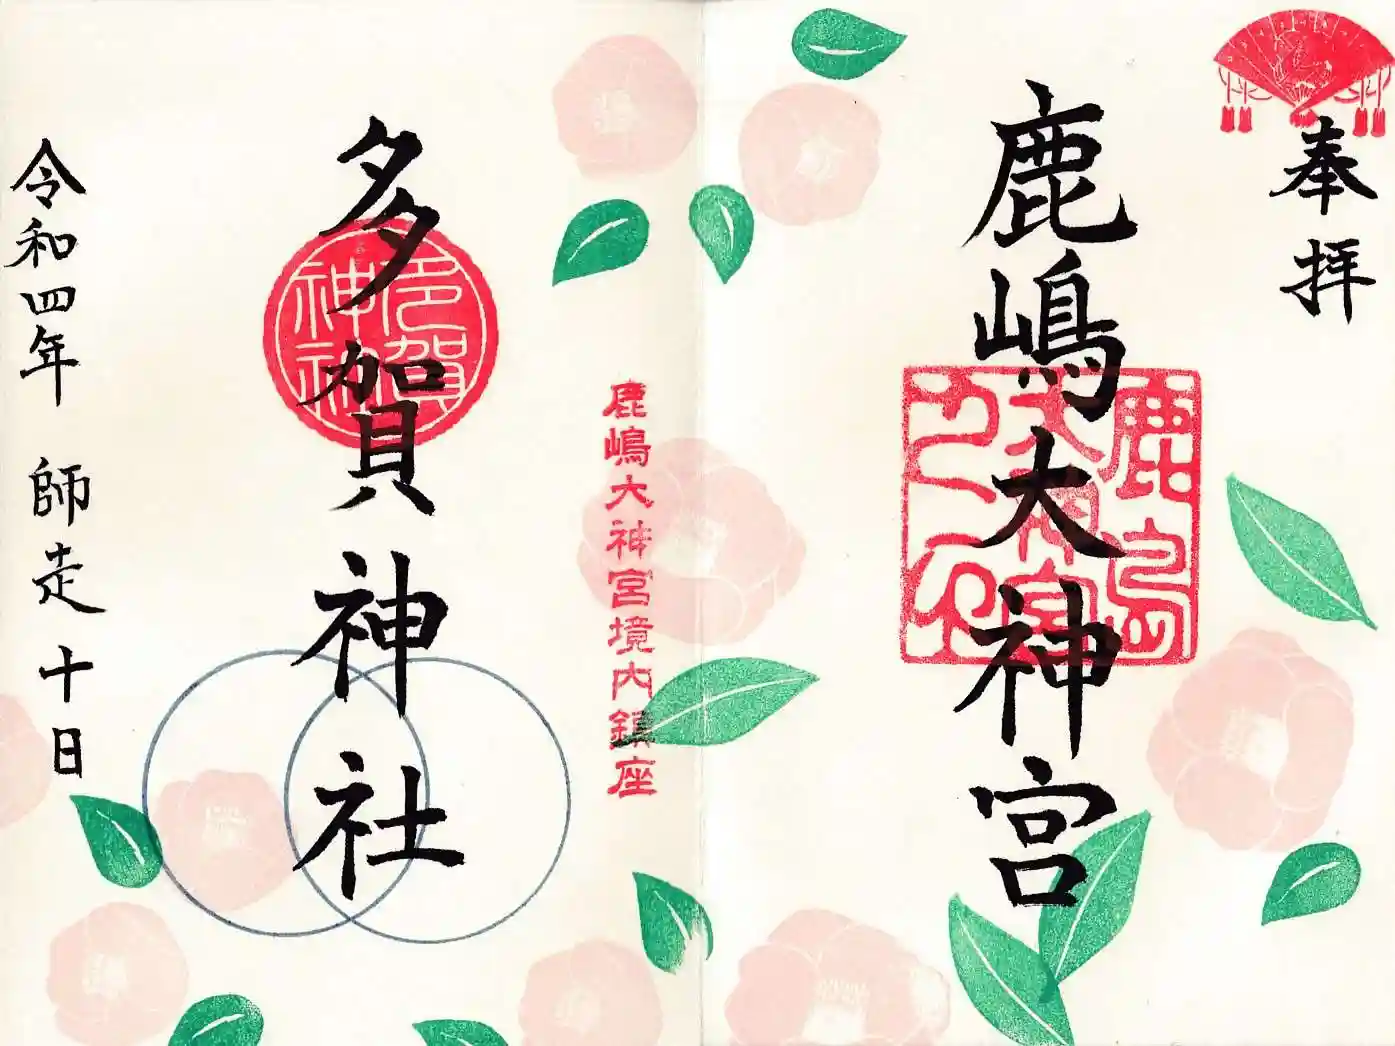 奉拝
鹿嶋大神宮
鹿島
大神宮
鹿嶋大神宮境内鎮座
多賀神社
多賀
神社
令和四年 師走 十日